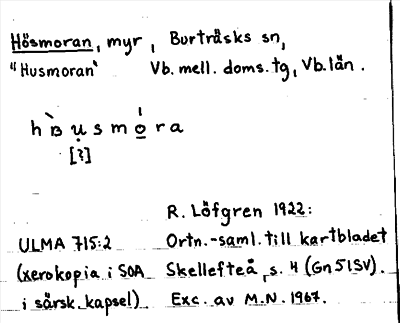 Hösmoran, myr, Burträsks sn,
"Husmoran" Vb. mell. doms.tg, Vb. län.
[?]
R. Löfgren 1922:
ULMA 715:2 Ortn.-saml. till kartbladet
(xerokopia i SOA Skellefteå, s. 4 (Gn 51SV).
i särsk. kapsel) Exc. av M.N. 1967.